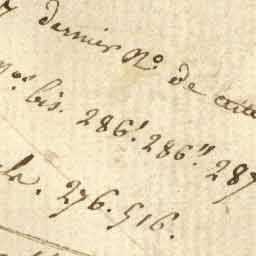 dernier N.º de
n.ºˢ bis. 286! 286!! 287
276. 516.